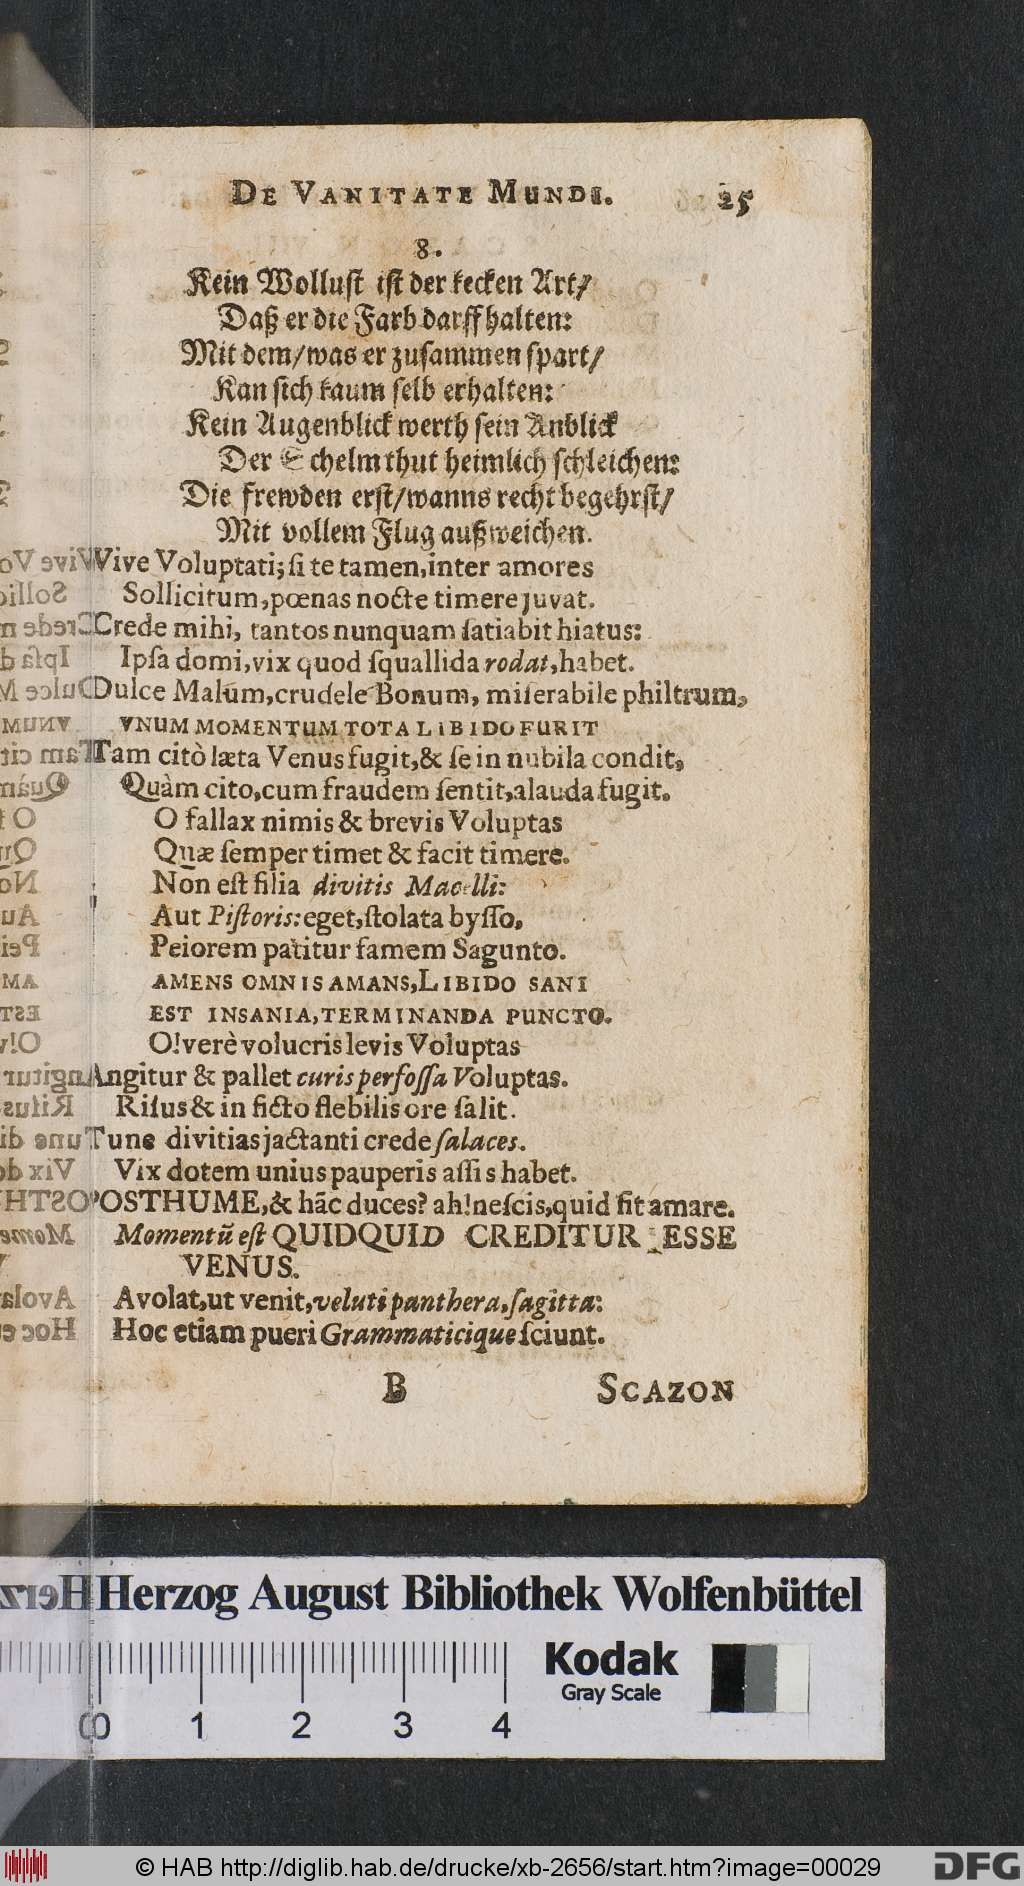 DE VANITATE MUNDI. 25
8.
Kein Wollust ist der kecken Art/
Daß er die Farb darff halten:
Mit dem/ was er zusammen spart/
Kan sich kaum selb erhalten:
Kein Augenblick werth sein Anblick
Der Schelm thut heimlich schleichen:
Die frewden erst/ wanns recht begehrst/
Mit vollem Flug außweichen.
Vive Voluptati; si te tamen, inter amores
Sollicitum, pœnas nocte timere juvat.
Crede mihi, tantos nunquam satiabit hiatus:
Ipsa domi, vix quod squallida rodat, habet.
Dulce Malum, crudele Bonum, miserabile philtrum,
VNUM MOMENTUM TOTA LIBIDO FURIT
Tam citò læta Venus fugit, & se in nubila condit,
Quàm cito, cum fraudem sentit, alauda fugit.
O fallax nimis & brevis Voluptas
Quæ semper timet & facit timere.
Non est filia divitis Macelli:
Aut Pistoris: eget, stolata bysso,
Peiorem patitur famem Sagunto.
AMENS OMNIS AMANS, LIBIDO SANI
EST INSANIA, TERMINANDA PUNCTO.
O! verè volucris levis Voluptas
Angitur & pallet curis perfossa Voluptas.
Risus & in ficto flebilis ore salit.
Tune divitias jactanti crede salaces.
Vix dotem unius pauperis assis habet.
POSTHUME, & hãc duces? ah! nescis, quid sit amare.
Momentũ est QUIDQUID CREDITUR ESSE
VENUS.
Avolat, ut venit, veluti panthera, sagitta:
Hoc etiam pueri Grammaticique sciunt.
B SCAZON
Herzog August Bibliothek Wolfenbüttel
Kodak
Gray Scale
0 1 2 3 4
© HAB http://diglib.hab.de/drucke/xb-2656/start.htm?image=00029
DFG